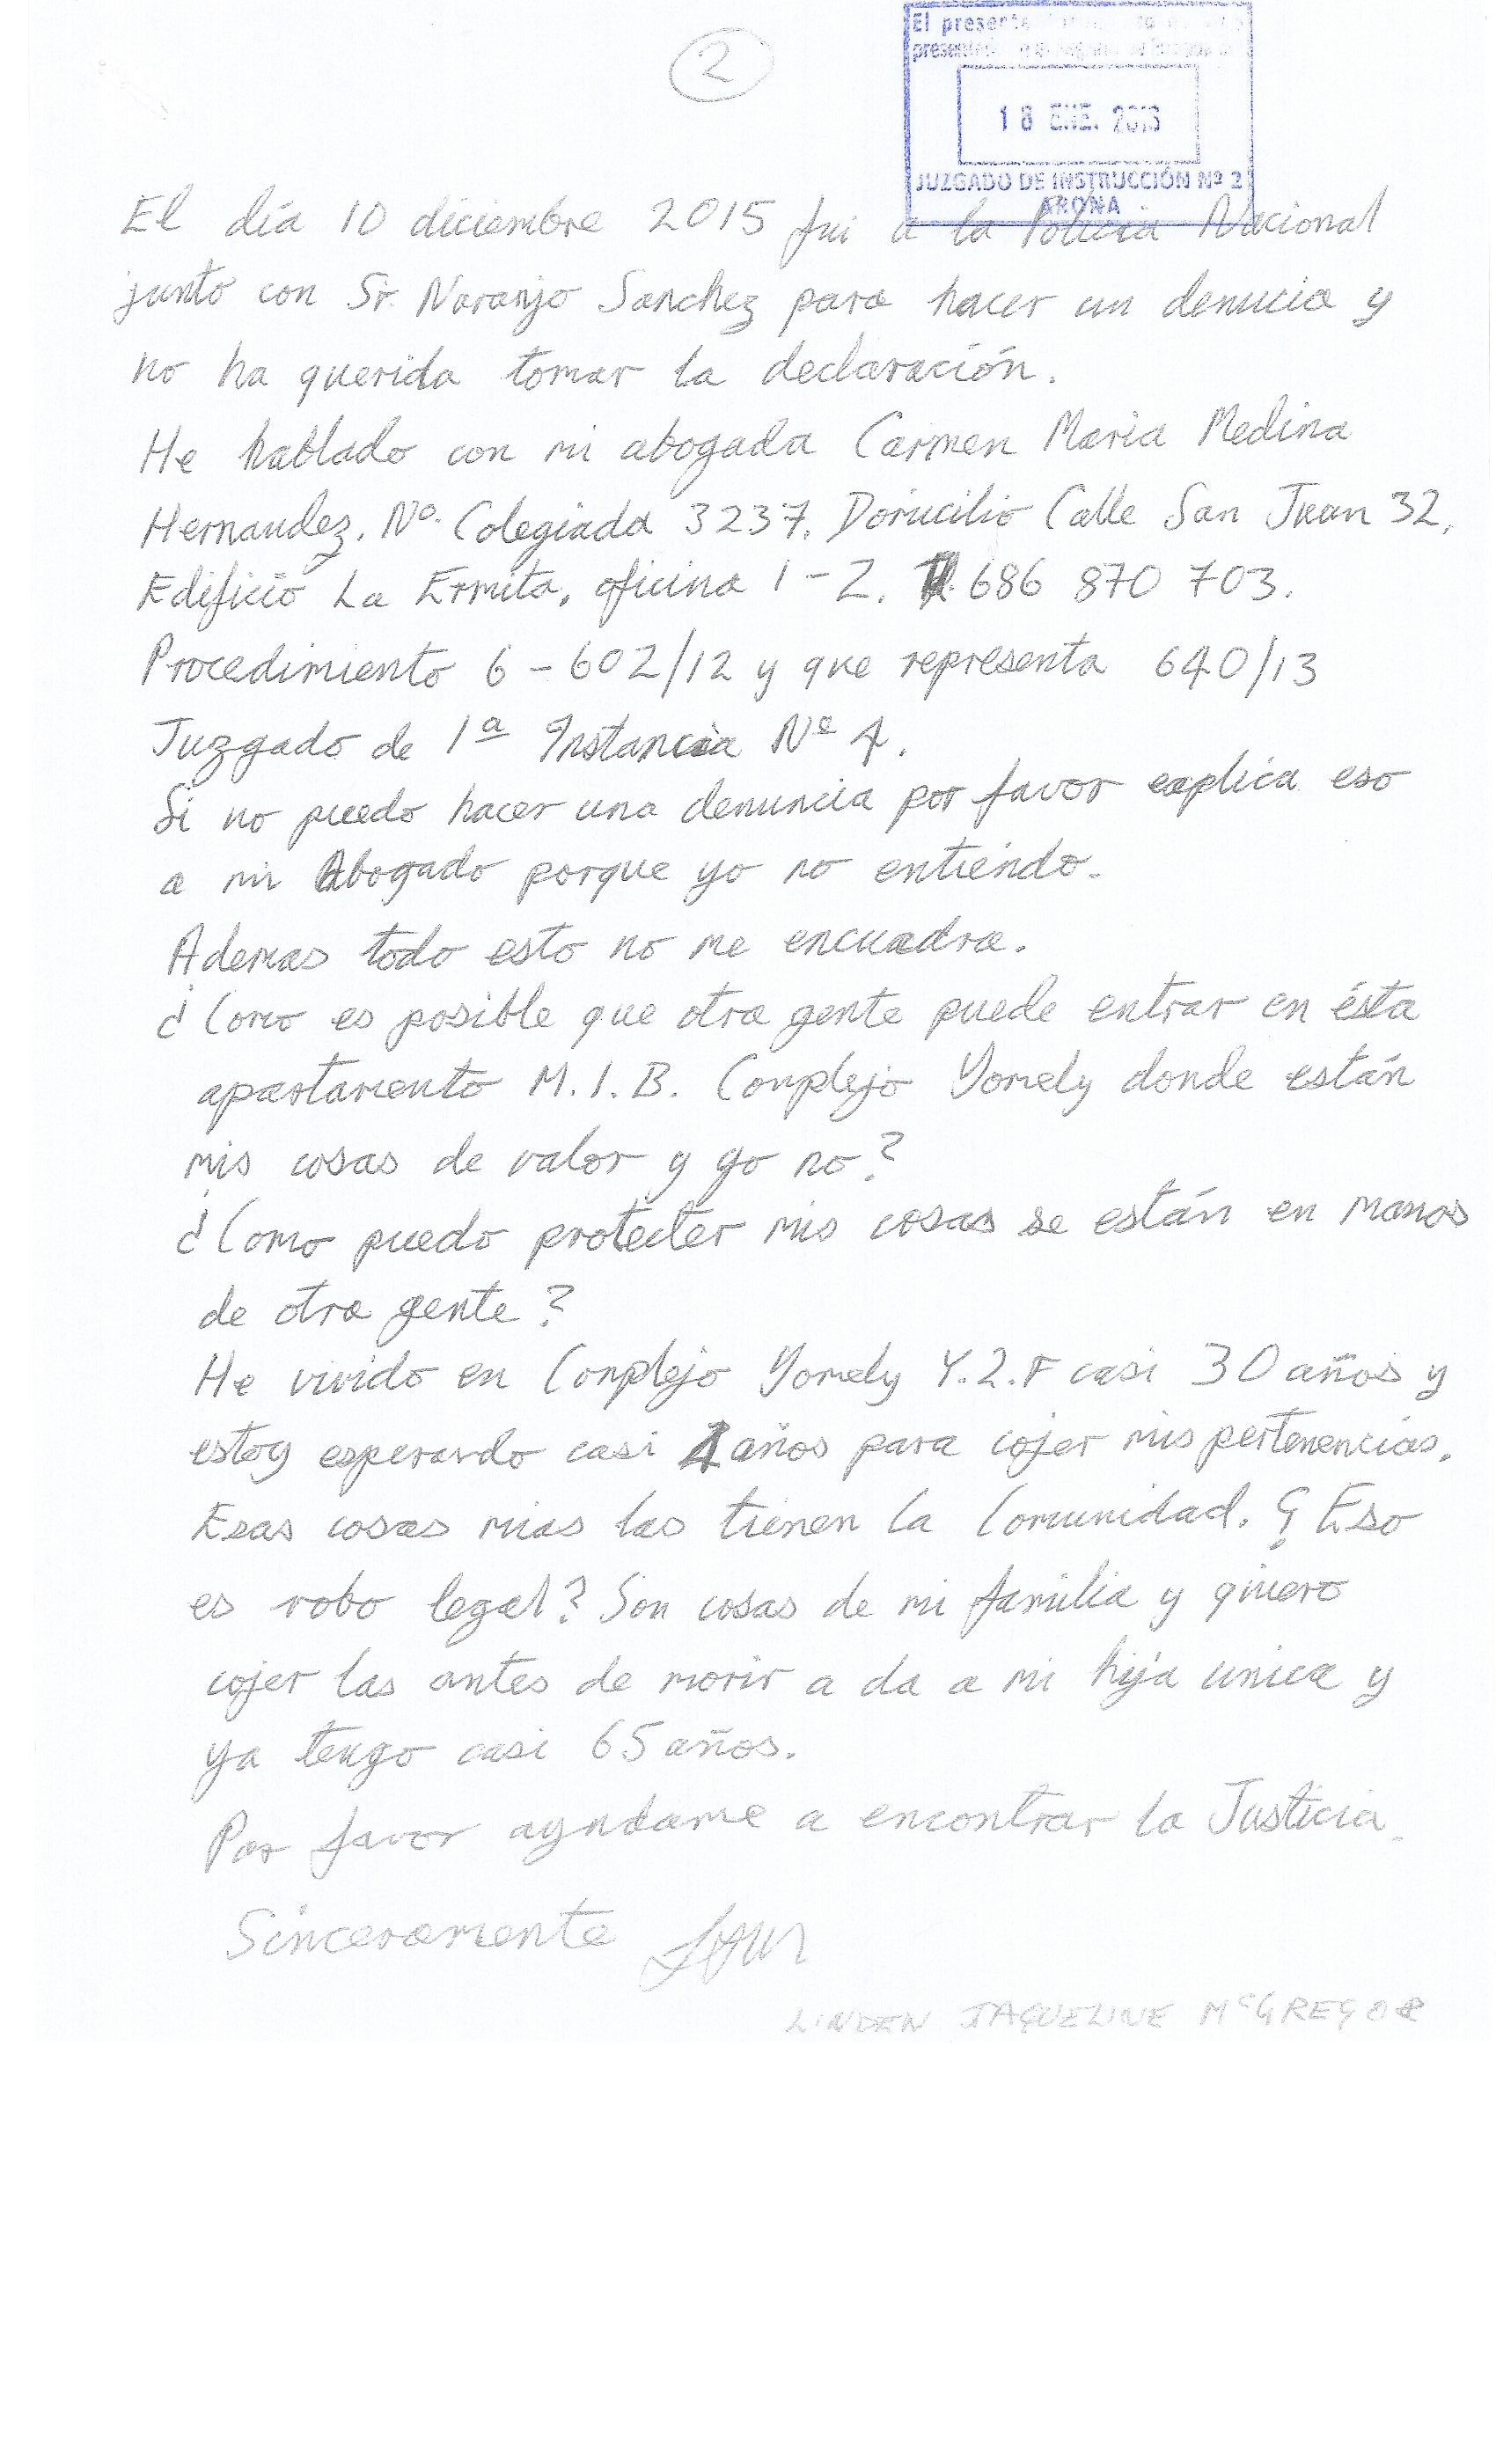 2
El presente
presente
18 ENE. 2016
JUZGADO DE INSTRUCCIÓN Nº 2
ARONA
El día 10 diciembre 2015 fui a la Policia Nacional
junto con Sr. Naranjo Sanchez para hacer un denucia y
no ha querida tomar la declaración.
He hablado con mi abogada Carmen Maria Medina
Hernandez. Nº. Colegiada 3237. Domicilio Calle San Juan 32,
Edificio La Ermita, oficina 1-2. 686 870 703.
Procedimiento 6-602/12 y que representa 640/13
Juzgado de 1ª Instancia Nº 4.
Si no puedo hacer una denuncia por favor explica eso
a mi Abogado porque yo no entiendo.
Ademas todo esto no me encuadra.
¿Como es posible que otra gente puede entrar en ésta
apartamento M.1.B. Complejo Yomely donde están
mis cosas de valor y yo no?
¿Como puedo protecter mis cosas se están en manos
de otra gente?
He vivido en Complejo Yomely Y.2.F casi 30 años y
estoy esperando casi 4 años para cojer mis pertenencias.
Esas cosas mias las tienen la Comunidad. ¿Eso
es robo legal? Son cosas de mi familia y quiero
cojer las antes de morir a da a mi hija unica y
ya tengo casi 65 años.
Por favor ayudame a encontrar la Justicia.
Sinceramente
LINDEN JAQUELINE McGREGOR